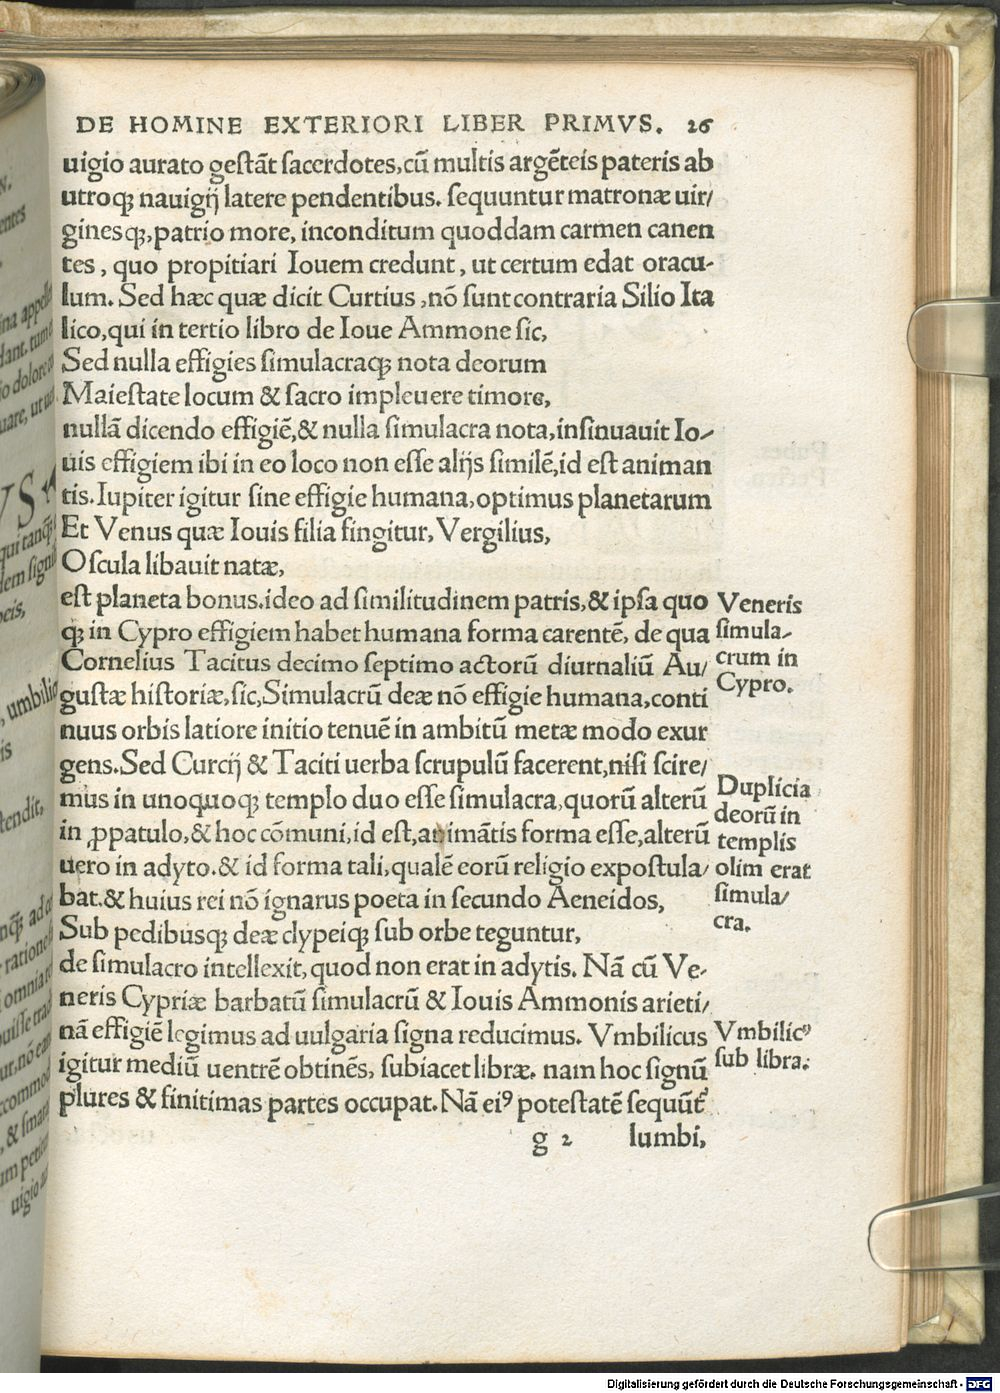 DE HOMINE EXTERIORI LIBER PRIMVS. 26
uigio aurato gestāt sacerdotes,cū multis argēteis pateris ab
utroq; nauigij latere pendentibus. sequuntur matronæ uir/
ginesq;,patrio more, inconditum quoddam carmen canen
tes, quo propitiari Iouem credunt, ut certum edat oracu-
lum. Sed hæc quæ dicit Curtius, nō sunt contraria Silio Ita
lico,qui in tertio libro de Ioue Ammone sic,
Sed nulla effigies simulacraq; nota deorum
Maiestate locum & sacro impleuere timore,
nullā dicendo effigiē,& nulla simulacra nota,insinuauit Io-
uis effigiem ibi in eo loco non esse alijs similē,id est animan
tis. Iupiter igitur sine effigie humana,optimus planetarum
Et Venus quæ Iouis filia fingitur, Vergilius,
Oscula libauit natæ,
est planeta bonus.ideo ad similitudinem patris,& ipsa quo
q; in Cypro effigiem habet humana forma carentē, de qua
Cornelius Tacitus decimo septimo actorū diurnaliū Au/
gustæ historiæ,sic,Simulacrū deæ nō effigie humana,conti
nuus orbis latiore initio tenuē in ambitū metæ modo exur
gens.Sed Curcij & Taciti uerba scrupulū facerent,nisi scire/
mus in unoquoq; templo duo esse simulacra,quorū alterū
in ꝓpatulo,& hoc cōmuni,id est,animātis forma esse,alterū
uero in adyto.& id forma tali,qualē eorū religio expostula/
bat.& huius rei nō ignarus poeta in secundo Aeneidos,
Sub pedibusq; deæ clypeiq; sub orbe teguntur,
de simulacro intellexit, quod non erat in adytis. Nā cū Ve-
neris Cypriæ barbatū simulacrū & Iouis Ammonis arieti/
nā effigiē legimus ad uulgaria signa reducimus. Vmbilicus
igitur mediū uentrē obtinēs, subiacet libræ. nam hoc signū
plures & finitimas partes occupat. Nā eiꝰ potestatē sequūt᷑
g 2 lumbi,
Veneris
simula-
crum in
Cypro.
Duplicia
deorū in
templis
olim erat
simula/
cra.
Vmbilicꝰ
sub libra.
Digitalisierung gefördert durch die Deutsche Forschungsgemeinschaft - DFG